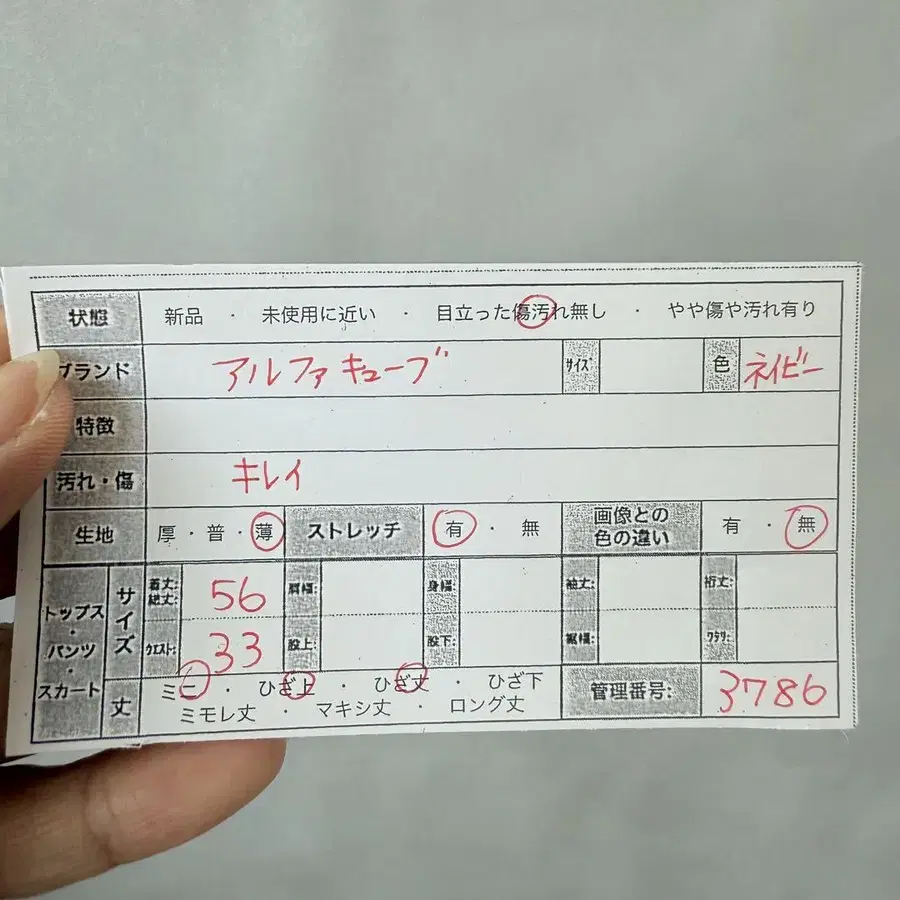 状態 新品 ・ 未使用に近い ・ 目立った傷汚れ無し ・ やや傷や汚れ有り
ブランド アルファキューブ ｻｲｽﾞ 色 ネイビー
特徴
汚れ・傷 キレイ
生地 厚・普・薄 ストレッチ 有 ・ 無 画像との色の違い 有 ・ 無
トップス・パンツ・スカート サイズ 着丈: 総丈: 56 肩幅: 身幅: 袖丈: 裄丈:
ｳｴｽﾄ: 33 股上: 股下: 裾幅: ﾜﾀﾘ:
丈 ミニ ・ ひざ上 ・ ひざ丈 ・ ひざ下 管理番号: 3786
ミモレ丈 ・ マキシ丈 ・ ロング丈